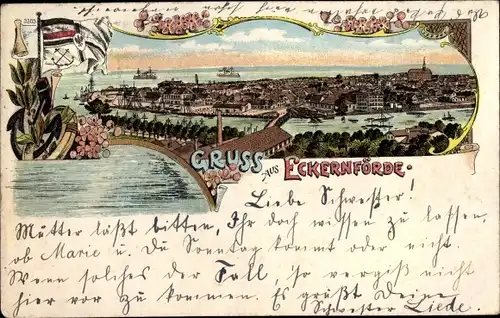 2103
GRUSS aus ECKERNFÖRDE.
Liebe Schwester!
Mutter läßt bitten, Ihr doch wissen zu lassen,
ob Marie u. Du Sonntag kommt oder nicht.
Wenn solches der Fall, so vergiß nicht
hier vor zu kommen. Es grüßt Deine
Schwester Liede.